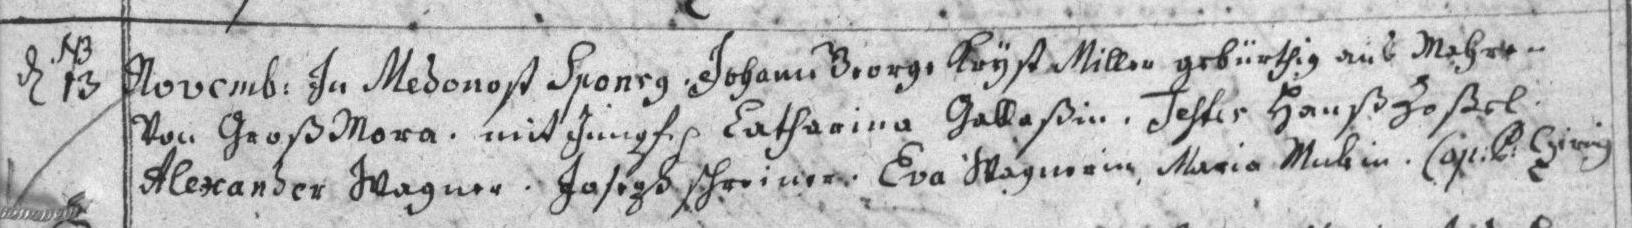 NB
d 13 Novemb: In Medonost Sponsg. Johann George Kryst Miller gebürthig aus Mehren
Von Groß Mora. mit Jungfr Catharina Gallaßin. Testes Hanß Zoßel.
Alexander Wagner. Joseph schreiner. Eva Wagnerin, Maria Mukin. Cop: P: